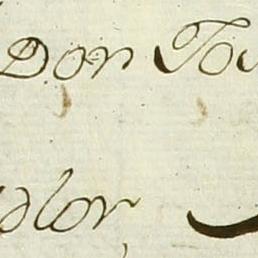 Don Jos
dlor,